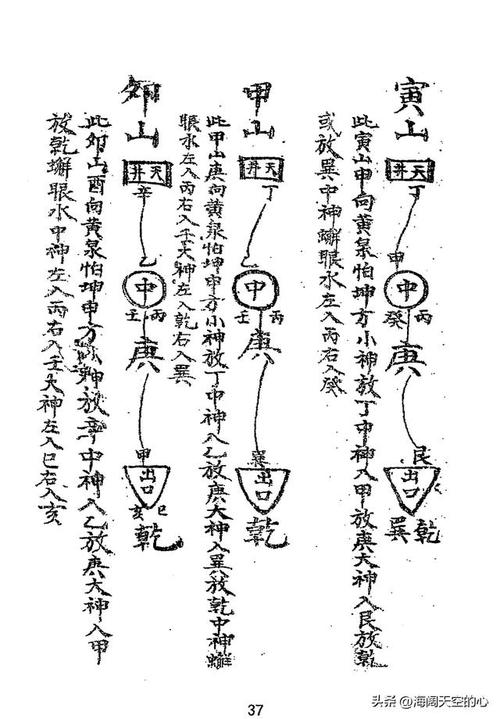 寅山
天井
丁
甲
中
丙 癸
庚
艮
出口
乾 巽
此寅山申向黄泉怕坤方小神放丁中神入甲放庚大神入艮放乾
或放巽中神蠏眼水左入丙右入癸
甲山
天井
丁
乙
中
丙 壬
庚
巽
出口
乾
此甲山庚向黄泉怕坤申方小神放丁中神入乙放庚大神入巽放乾中神蠏
眼水左入丙右入壬大神左入乾右入巽
夘山
天井
辛
乙
中
丙 壬
庚
甲
出口
巳 亥
乾
此夘山酉向黄泉怕坤申方小神放辛中神入乙放庚大神入甲
放乾蠏眼水中神左入丙右入壬大神左入巳右入亥
37
头条 @海阔天空的心